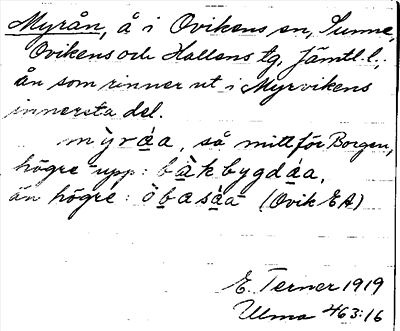 Myrån, å i Ovikens sn, Sunne,
Ovikens och Hallens tg, Jämtl. l.;
ån som rinner ut i Myrvikens
innersta del.
mỳrà̲a, så mitt för Borgen,
högre upp: bа̲̀kbygdà̲a,
än högre: òba̲sà̲a (Ovik EA)
E. Terner 1919
Ulma 463:16